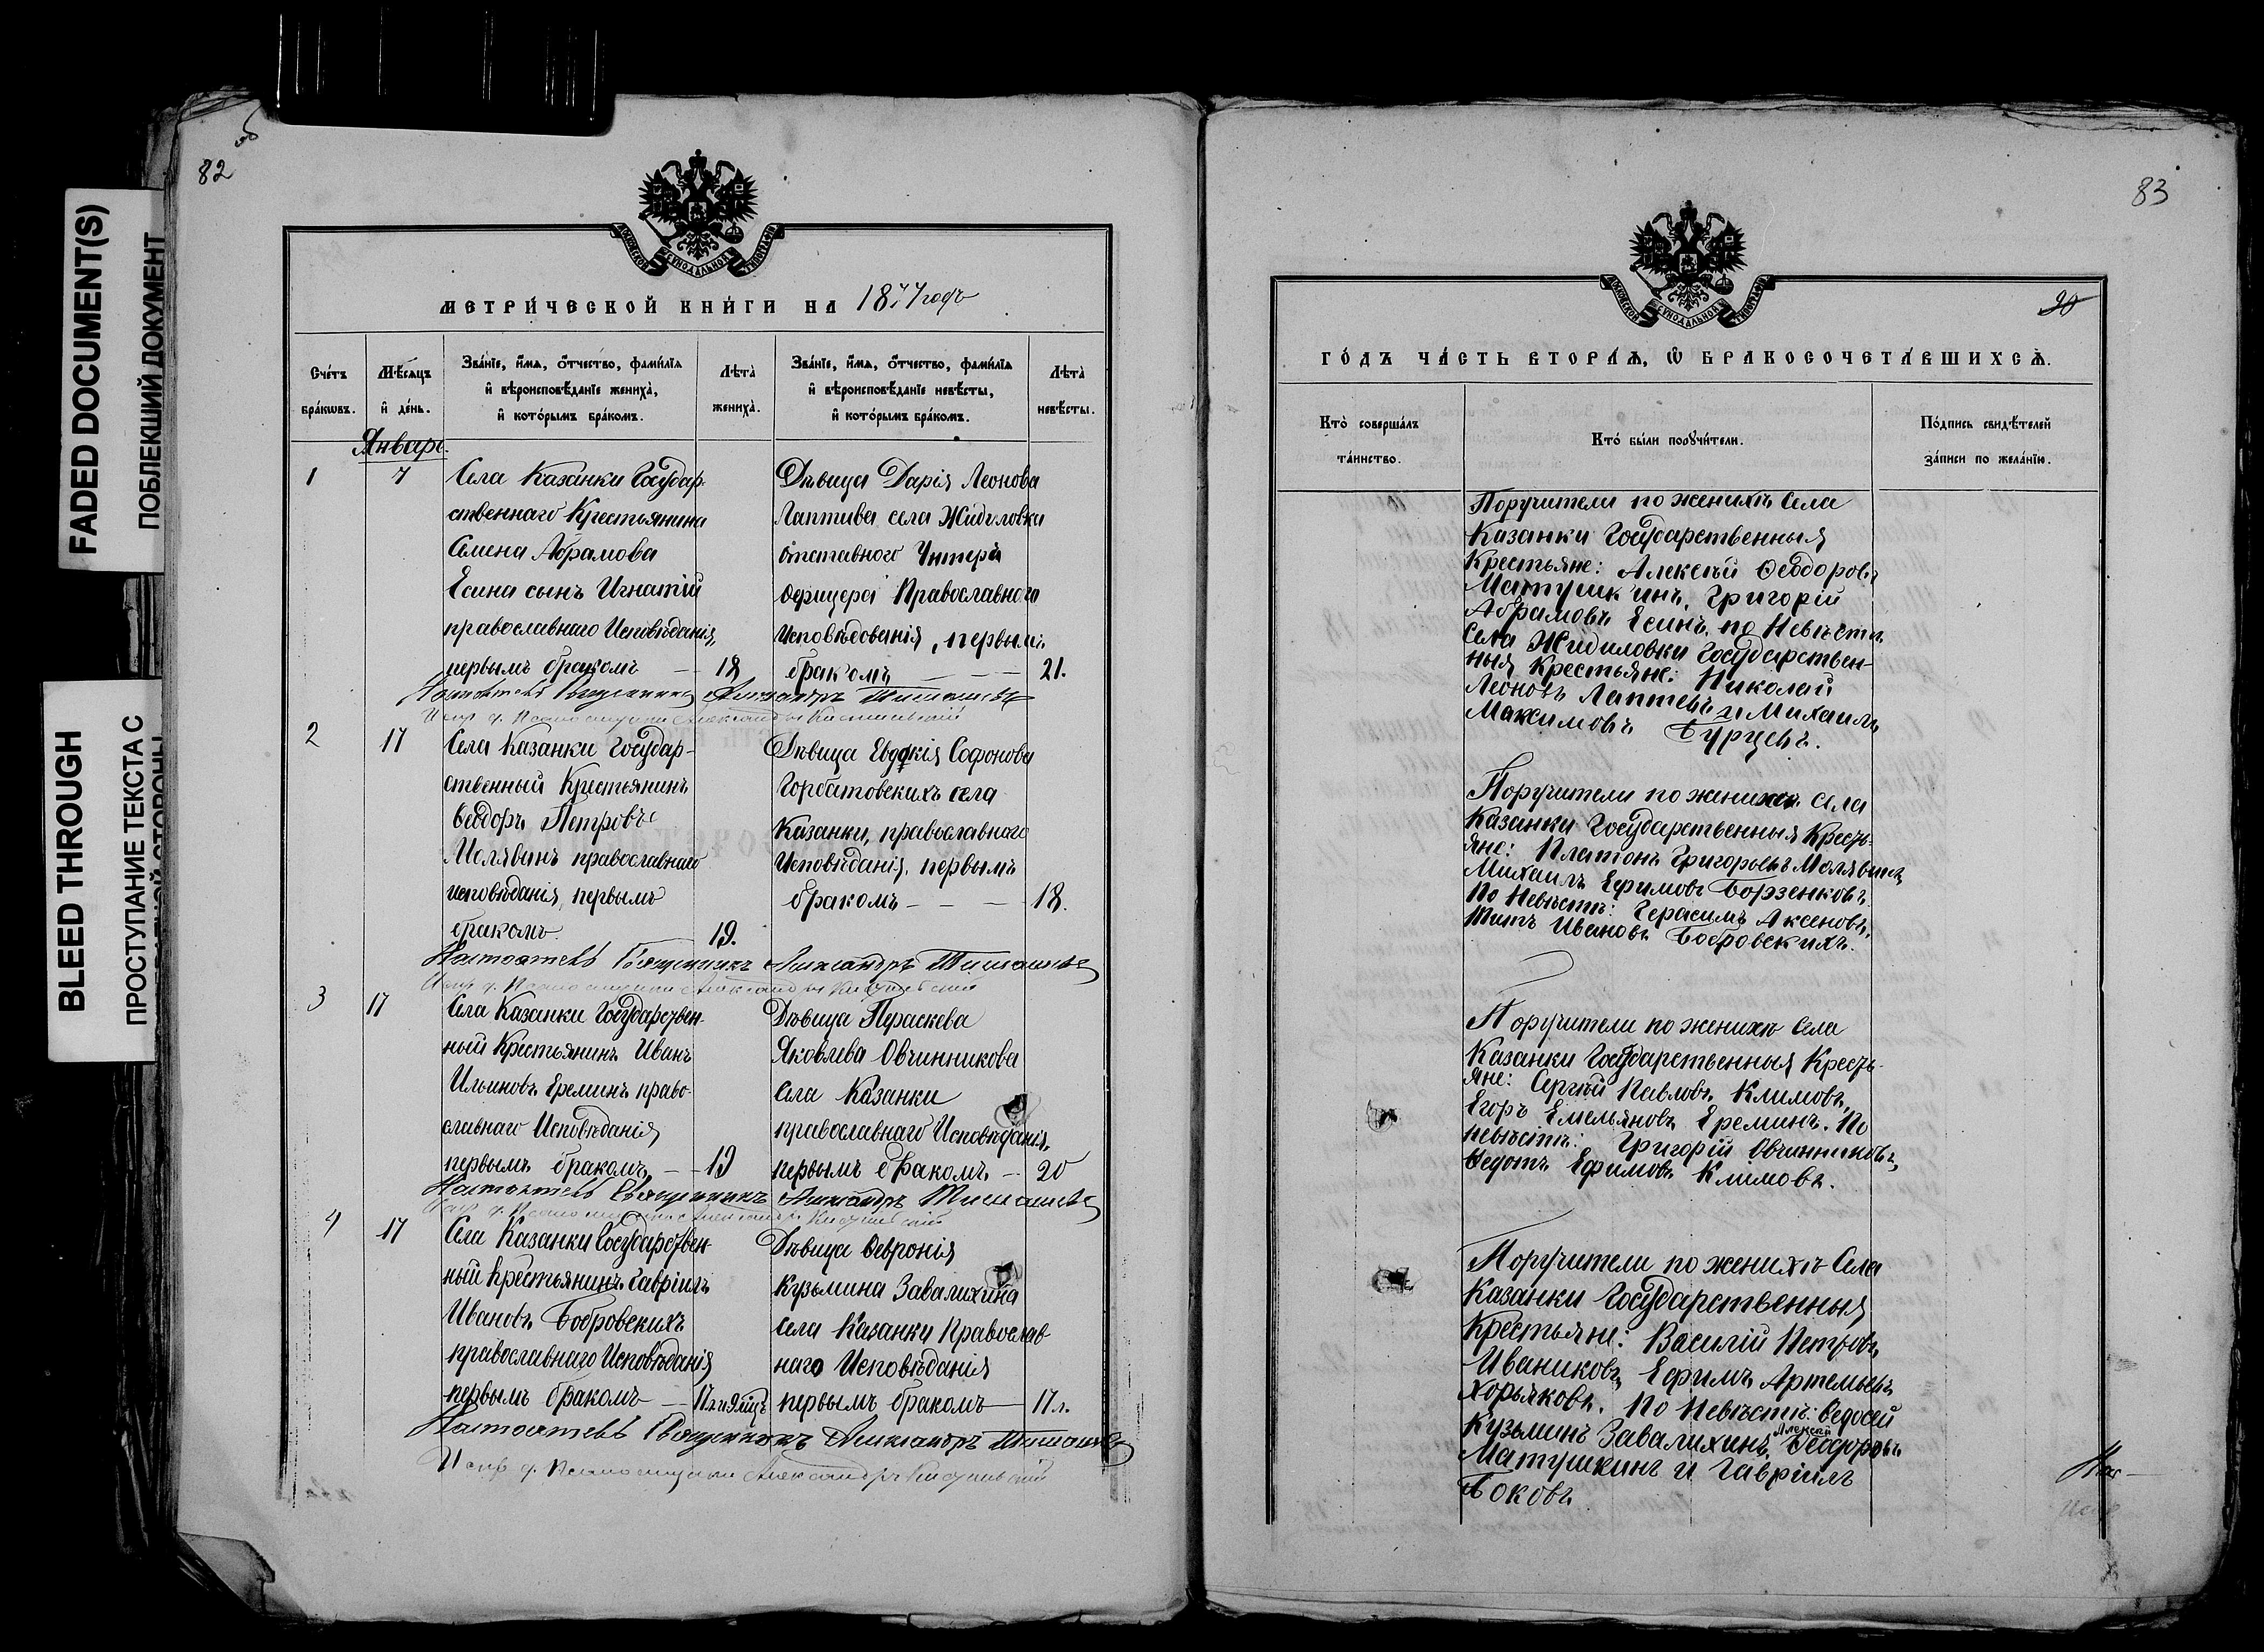 FADED DOCUMENT(S)
ПОБЛЕКШИЙ ДОКУМЕНТ
BLEED THROUGH
ПРОСТУПАНИЕ ТЕКСТА С
82 об
МОСКОВСКОЙ СѴНОДАЛЬНОЙ ТИПОГРАФІИ
МЕТРИ́ЧЕСКОЙ КНИ́ГИ НА 1877 годъ
Сче́тъ бра́кѡвъ.
Мѣ́сяцъ и҆ де́нь.
Зва́нїе, и҆́мѧ, ѻ҆́тчество, фами́лїѧ и҆ вѣроисповѣ́данїе жениха̀, и҆ кото́рымъ бра́комъ.
Лѣта̀ жениха̀.
Зва́нїе, и҆́мѧ, ѻ҆́тчество, фами́лїѧ и҆ вѣроисповѣ́данїе невѣ́сты, и҆ кото́рымъ бра́комъ.
Лѣта̀ невѣ́сты.
Январь.
1 7
Села Казанки Государ-
ственнаго Крестьянина
Семена Абрамова
Есина сынъ Игнатій
православнаго Исповѣданія,
первымъ бракомъ — 18
Дѣвица Дарія Леонова
Лаптива села Жидиловки
отставного Унтера
Офицера Православного
Исповѣдованія, первымъ
бракомъ — — — 21.
Настоятель Священникъ Александръ
2 17
Села Казанки Государ-
ственный Крестьянинъ
Ѳеодоръ Петровъ
Молявинъ православнаго
исповѣданія, первымъ
бракомъ 19.
Дѣвица Евдокія Софонова
Горбатовскихъ села
Казанки, православнаго
Исповѣданія, первымъ
бракомъ — — — 18.
Настоятель Священникъ Александръ
3 17
Села Казанки Государствен-
ный Крестьянинъ Иванъ
Ильиновъ Ереминъ право-
славнаго Исповѣданія
первымъ бракомъ — 19
Дѣвица Параскева
Яковлева Овчинникова
Села Казанки
православнаго Исповѣданія,
первымъ бракомъ — 20
Настоятель Священникъ Александръ
4 17
Села Казанки Государствен-
ный Крестьянинъ Гавріилъ
Ивановъ Бобровскихъ
православнаго Исповѣданія
первымъ бракомъ —
Дѣвица Ѳевронія
Кузьмина Завалихина
Села Казанки Православ-
наго Исповѣданія
первымъ бракомъ — 17 л.
Настоятель Священникъ Александръ
83
МОСКОВСКОЙ СѴНОДАЛЬНОЙ ТИПОГРАФІИ
ГО́ДЪ ЧА́СТЬ ВТОРА́Ѧ, Ѡ҆ БРАКОСОЧЕТА́ВШИХСѦ.
Кто̀ соверша́лъ та́инство.
Кто̀ бы́ли порꙋчи́тели.
По́дпись свидѣ́телей за́писи по жела́нїю.
Поручители по женихѣ Села
Казанки Государственныя
Крестьяне: Алексѣй Ѳеодоровъ
Матушкинъ, Григорій
Абрамовъ Есинъ, по Невѣстѣ
Села Жидиловки Государствен-
ныя Крестьяне: Николай
Леоновъ Лаптевъ и Михаилъ
Максимовъ Бурцевъ.
Поручители по женихѣ Села
Казанки Государственныя Кресть-
яне: Платонъ Григорьевъ Молявинъ,
Михаилъ Ефимовъ Борзенковъ,
По Невѣстѣ: Герасимъ Аксеновъ,
Титъ Ивановъ Бобровскихъ.
Поручители по женихѣ Села
Казанки Государственныя Кресть-
яне: Сергѣй Павловъ Климовъ,
Егоръ Емельяновъ Ереминъ. По
невѣстѣ: Григорій Овчинниковъ,
Ѳедотъ Ефимовъ Климовъ.
Поручители по женихѣ Села
Казанки Государственныя
Крестьяне: Василій Петровъ
Иваниковъ, Ефимъ Артемьевъ
Хорьяковъ. По Невѣстѣ: Ѳедосей
Кузьминъ Завалихинъ, Алексѣй Ѳеодоровъ
Матушкинъ и Гавріилъ
Боковъ